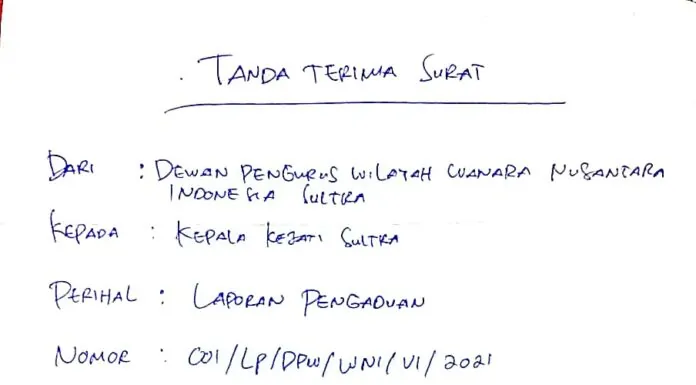 TANDA TERIMA SURAT
DARI : DEWAN PENGURUS WILAYAH WANARA NUSANTARA
INDONESIA SULTRA
KEPADA : KEPALA KEJATI SULTRA
PERIHAL : LAPORAN PENGADUAN
NOMOR : 001/LP/DPW/WNI/VI/2021